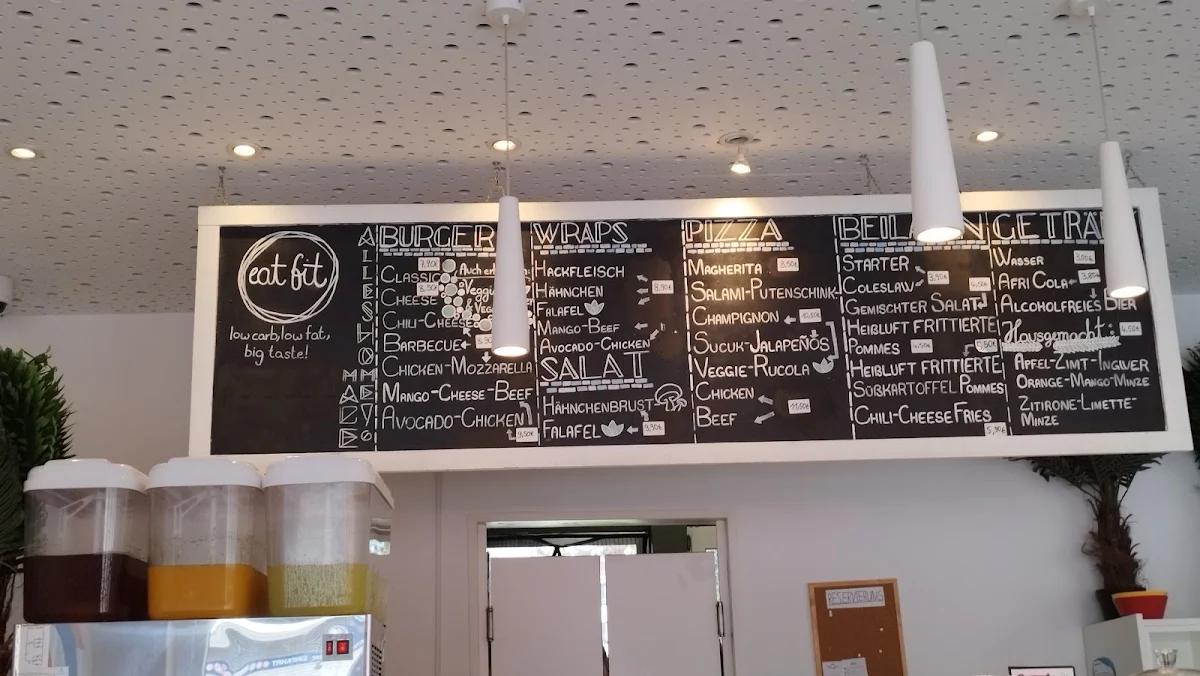 eat fit
low carb, low fat,
big taste!
ALLES HOMEMADE
BURGER
7,90€
CLASSIC
8,50€
CHEESE
Auch
Veggie
CHILI-CHEESE
BARBECUE
CHICKEN-MOZZARELLA
MANGO-CHEESE-BEEF
AVOCADO-CHICKEN
9,50€
WRAPS
HACKFLEISCH
HÄHNCHEN
8,90€
FALAFEL
MANGO-BEEF
AVOCADO-CHICKEN
SALAT
HÄHNCHENBRUST
FALAFEL
9,90€
PIZZA
MAGHERITA
8,50€
SALAMI-PUTENSCHINK-
CHAMPIGNON
10,50€
SUCUK-JALAPEÑOS
VEGGIE-RUCOLA
CHICKEN
BEEF
11,50€
BEILA
STARTER
COLESLAW
3,90€
GEMISCHTER SALAT
4,50€
HEIßLUFT FRITTIERTE
POMMES
4,50€
HEIßLUFT FRITTIERTE
SÜßKARTOFFEL POMMES
CHILI-CHEESE FRIES
5,90€
GETRÄ
WASSER
3,00€
AFRI COLA
ALCOHOLFREIES BIER
Hausgemacht:
4,50€
APFEL-ZIMT-INGWER
ORANGE-MANGO-MINZE
ZITRONE-LIMETTE-
MINZE
RESERVIERUNG